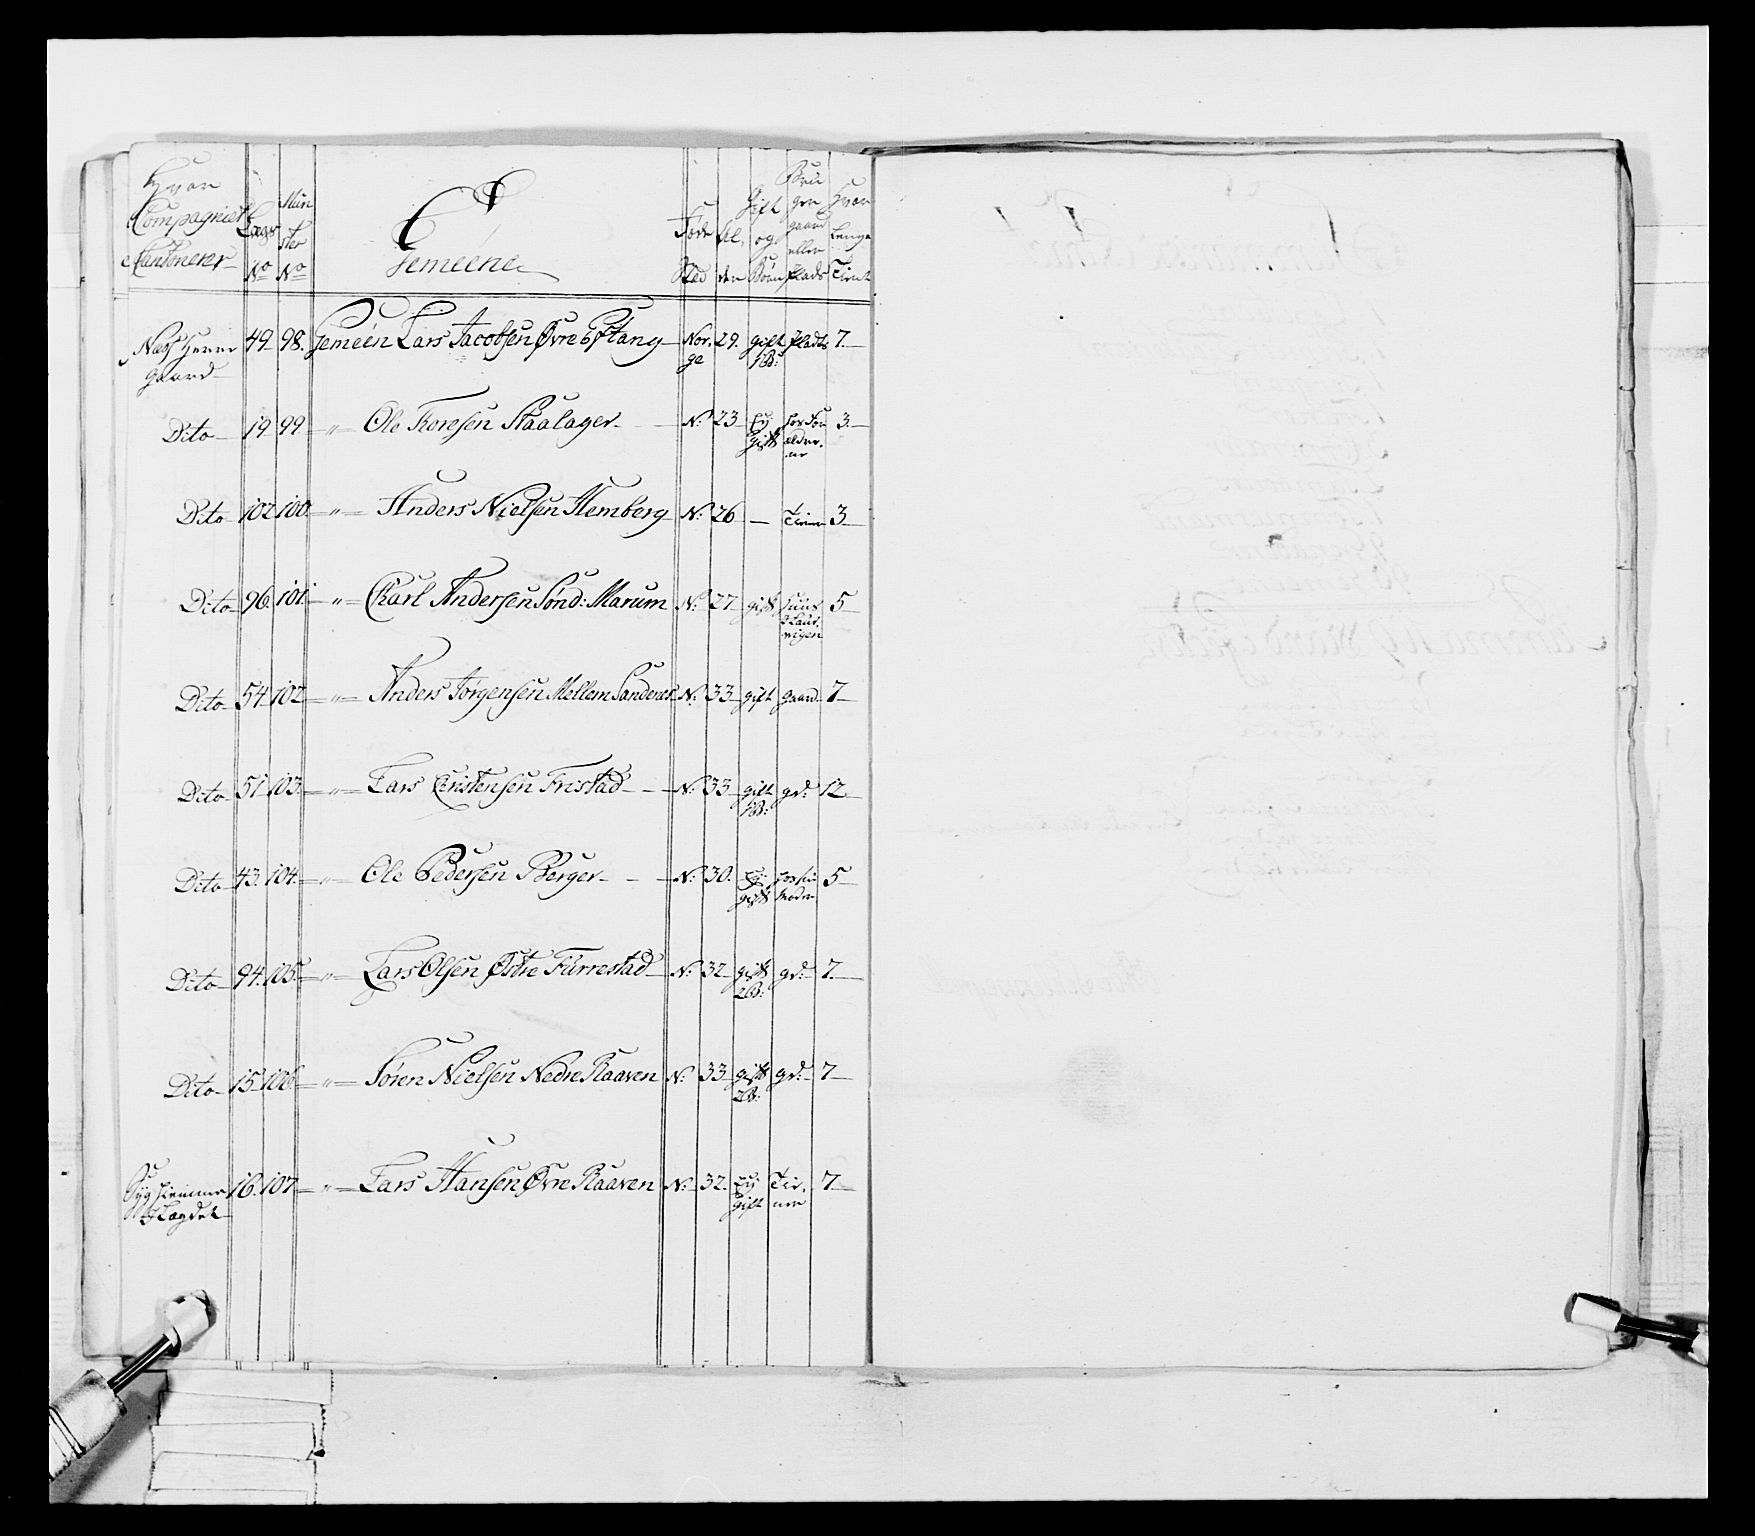 Hvor Compagniet Cantonerer | Lægs No | Mün ster No | Gemeene | Føde Sted | Al, der | Gift og Børn | Bru ger gaard eller Plads | Hvor Lenge Tient
Næs Herre gaard | 49 | 98. | Gemeen Lars Jacobsen Øvre Stang | Nor. ge | 29. | gift 1B: | Plads | 7.
Dito | 19 | 99 | " Ole Toresen Staalager | N: | 23 | Ey gift | hos For ældre. ne | 3.
Dito | 102 | 100. | " Anders Nielsen Hemberg | N: | 26 | — | Tiener | 3
Dito | 96. | 101. | " Charl Andersen Sønd: Marum | N: | 27 | gift | huus I Laur. vigen | 5
Dito | 54 | 102 | " Anders Jørgensen Mellem Sanderød | N: | 33 | gift | gaard | 7
Dito | 51 | 103. | " Lars Christensen Fristad | N: | 33 | gift 1B: | gd: | 12
Dito | 43. | 104. | " Ole Pedersen Berger | N: | 30. | Ey gift | hos sin Moder | 5
Dito | 94. | 105. | " Lars Olsen Østre Furrestad | N: | 32 | gift 2B: | gd: | 7.
Dito | 15 | 106 | " Søren Nielsen Nedre Raaven | N: | 33 | gift 2B: | gd: | 7
Syg hiemme I Lægdet | 16. | 107 | " Lars Hansen Øvre Raaven | N: | 32. | Ey gift | Tie. ner | 7